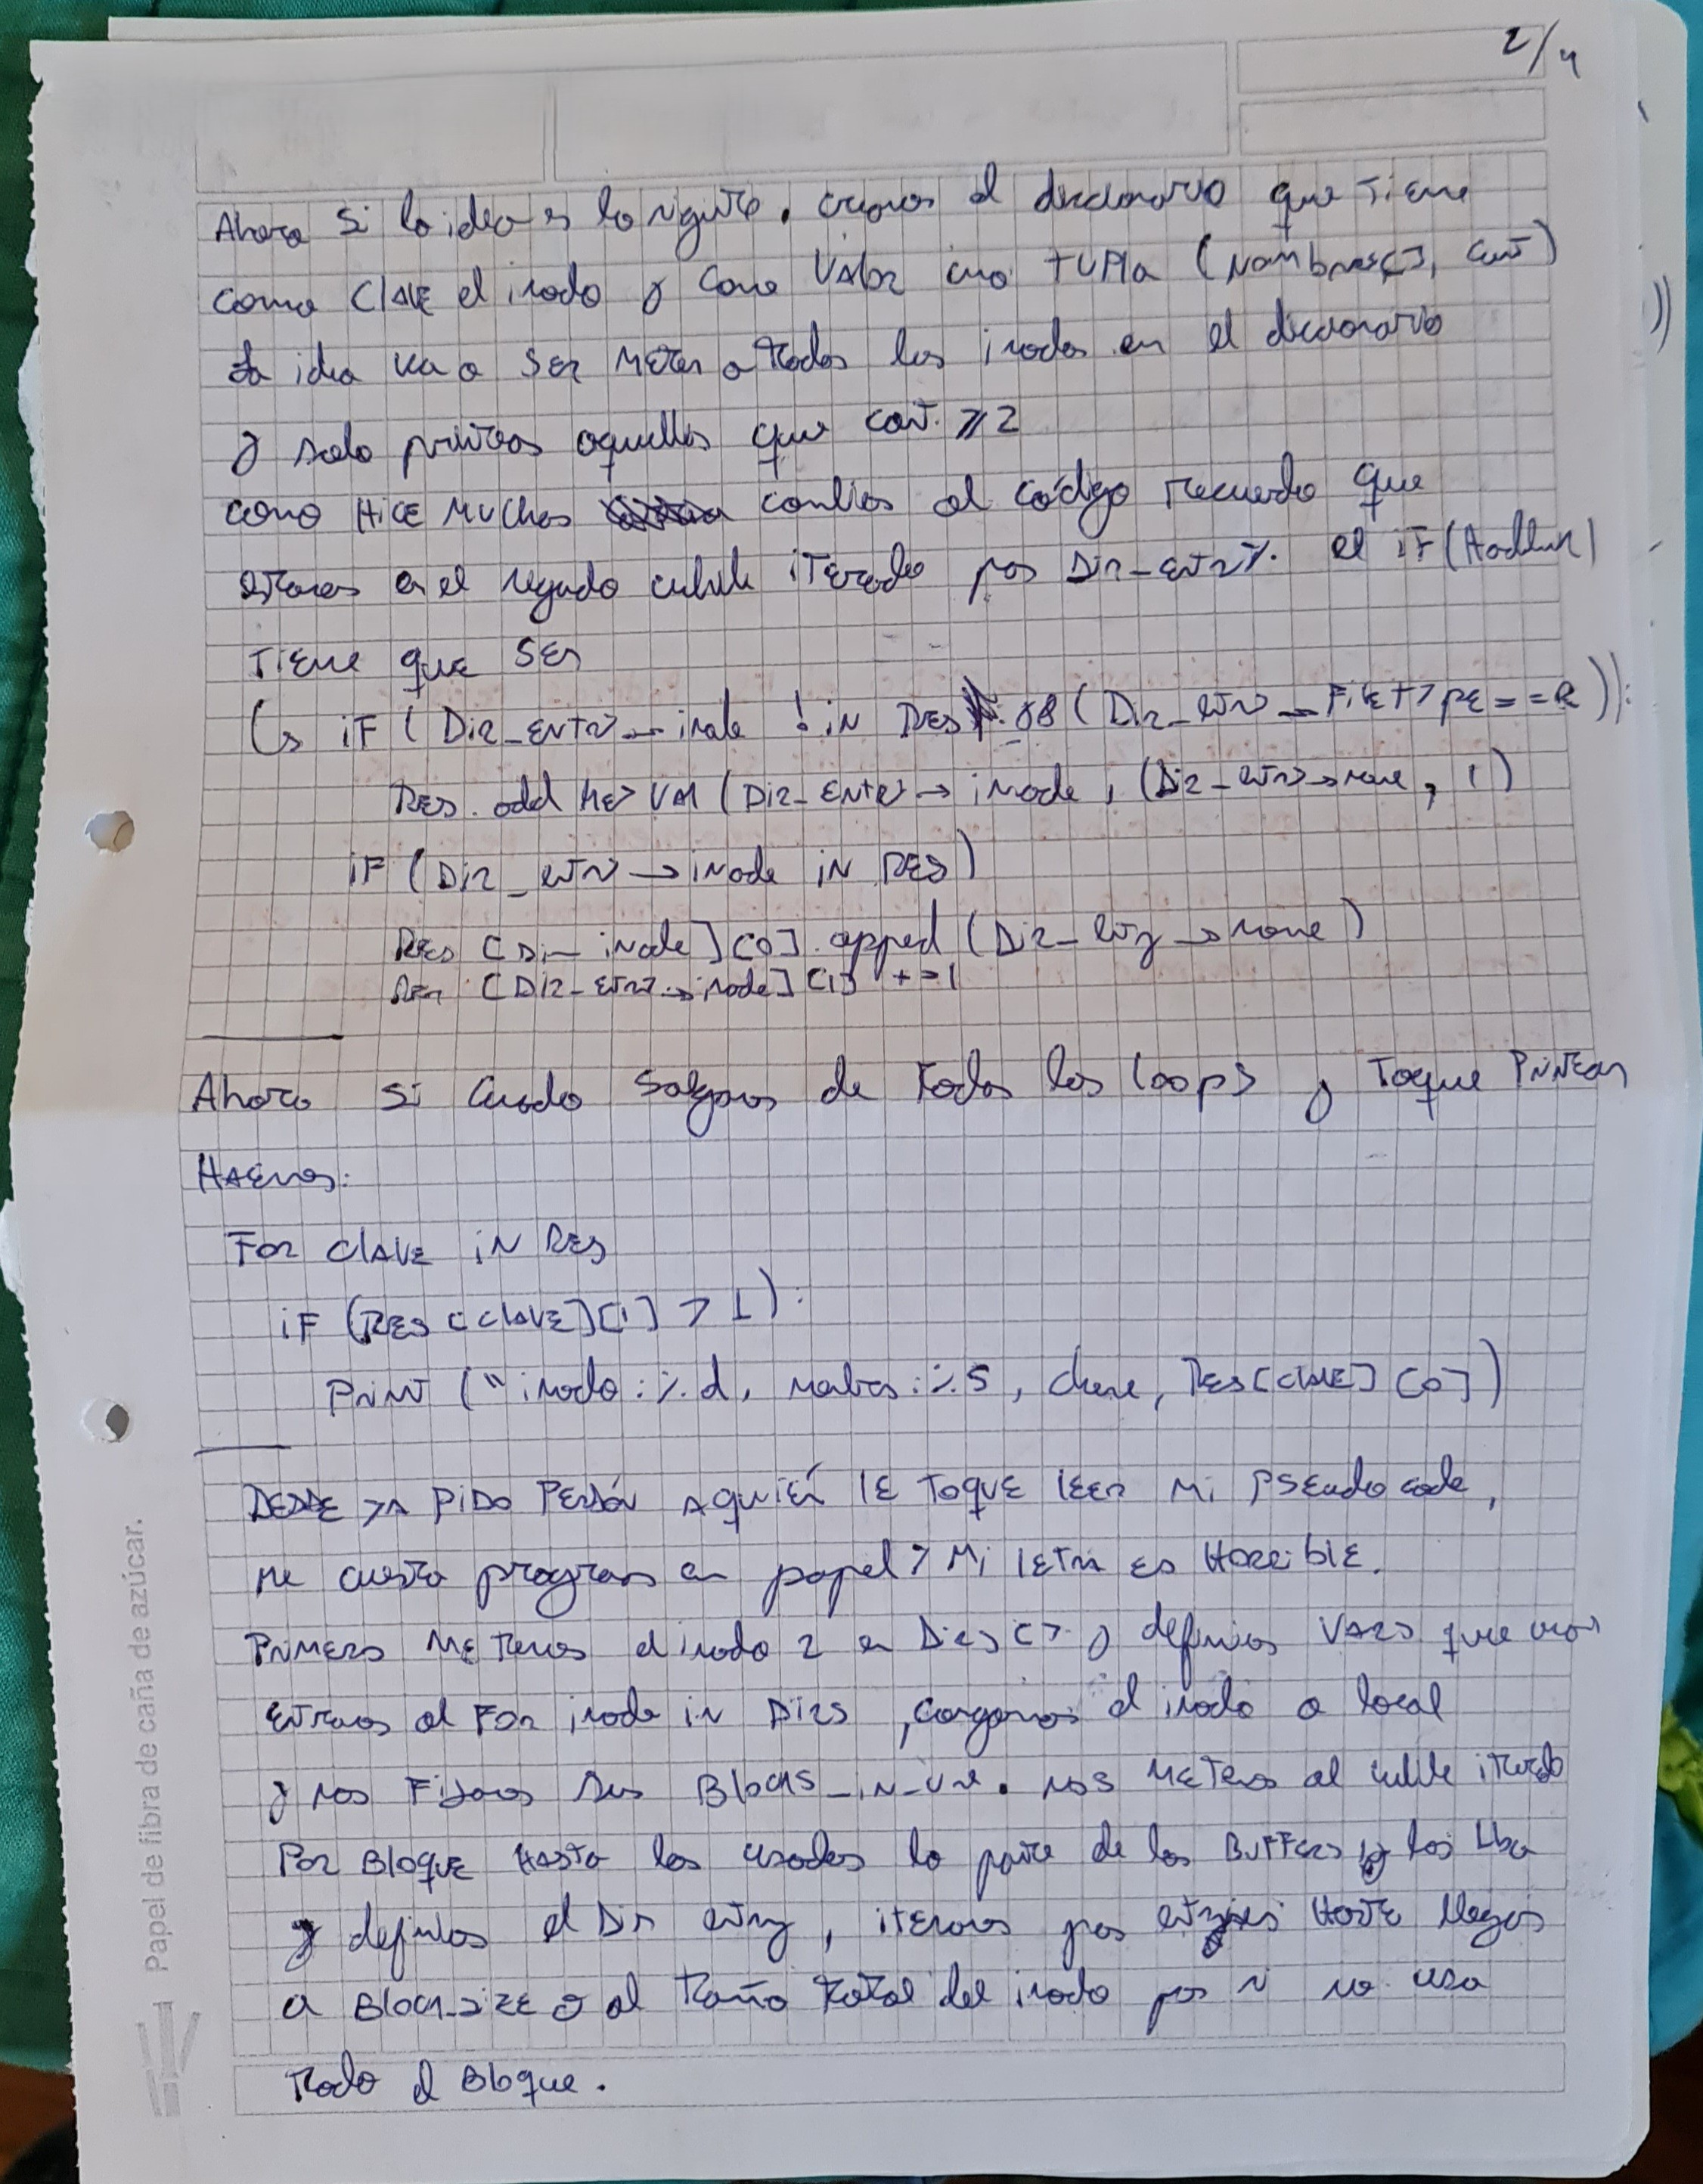 2/4
Ahora si la idea es la siguite. creamos el diccionario que Tiene
como CLAVE el inodo y como VAlor una TUPla (Nombres[], cant)
La idea va a SER Meter a todos los inodos en el diccionario
y solo printeas aquellos que cant. >= 2
como HiCE MUChos cambios al código recuerdo que
estamos en el segundo while iterado por Dir_entry. el iF(Hardlink)
Tiene que SER
↳ iF (Dir_Entry → inode ! iN RES OR (Dir_entry → FiletypE == R)):
RES. add KEY VAl (Dir_Entry → inode, (Dir_entry → name, 1)
iF (Dir_entry → iNode iN RES)
RES [Di → inode][0]. apped (Dir_entry → name)
Res [Dir_entry → inode][1] +=1
Ahora si Cuado Salgamos de todos los loops y Toque PriNtear
HAEmos:
For CLAVE iN RES
iF (RES [CLAVE][1] > 1):
PriNt ("inodo: %d, nombres: %S, clave, RES[CLAVE][0])
DESDE YA PiDo PERDóN A quiéN lE Toque lEEr Mi PSEudo code,
Me cuesta programar en papel Y Mi lEtra ES HorriblE.
PriMero METemos el inodo 2 en Dirs[] y definimos VArs que
Entramos al For inode in Dirs, cargamos el inodo a local
y nos Fijamos sus Blocks_iN_use. nos METemos al while iterado
Por BloquE HAsta los usados lo parte de los BuFFers y los Lba
y definimos el Dir entry, iteramos por entries Hasta llegar
a Block_sizE o al Tamaño Total del inodo por si no usa
Todo el Bloque.
Papel de fibra de caña de azúcar.